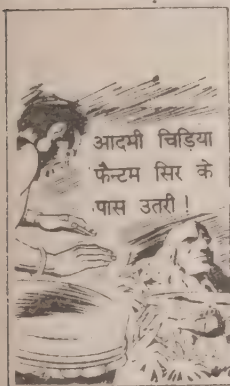 आदमी चिड़िया
फैन्टम सिर के
पास उतरी !